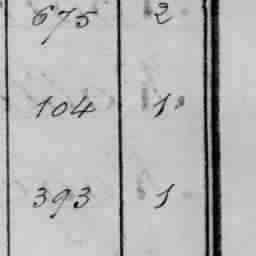 675 2
104 1
393 1